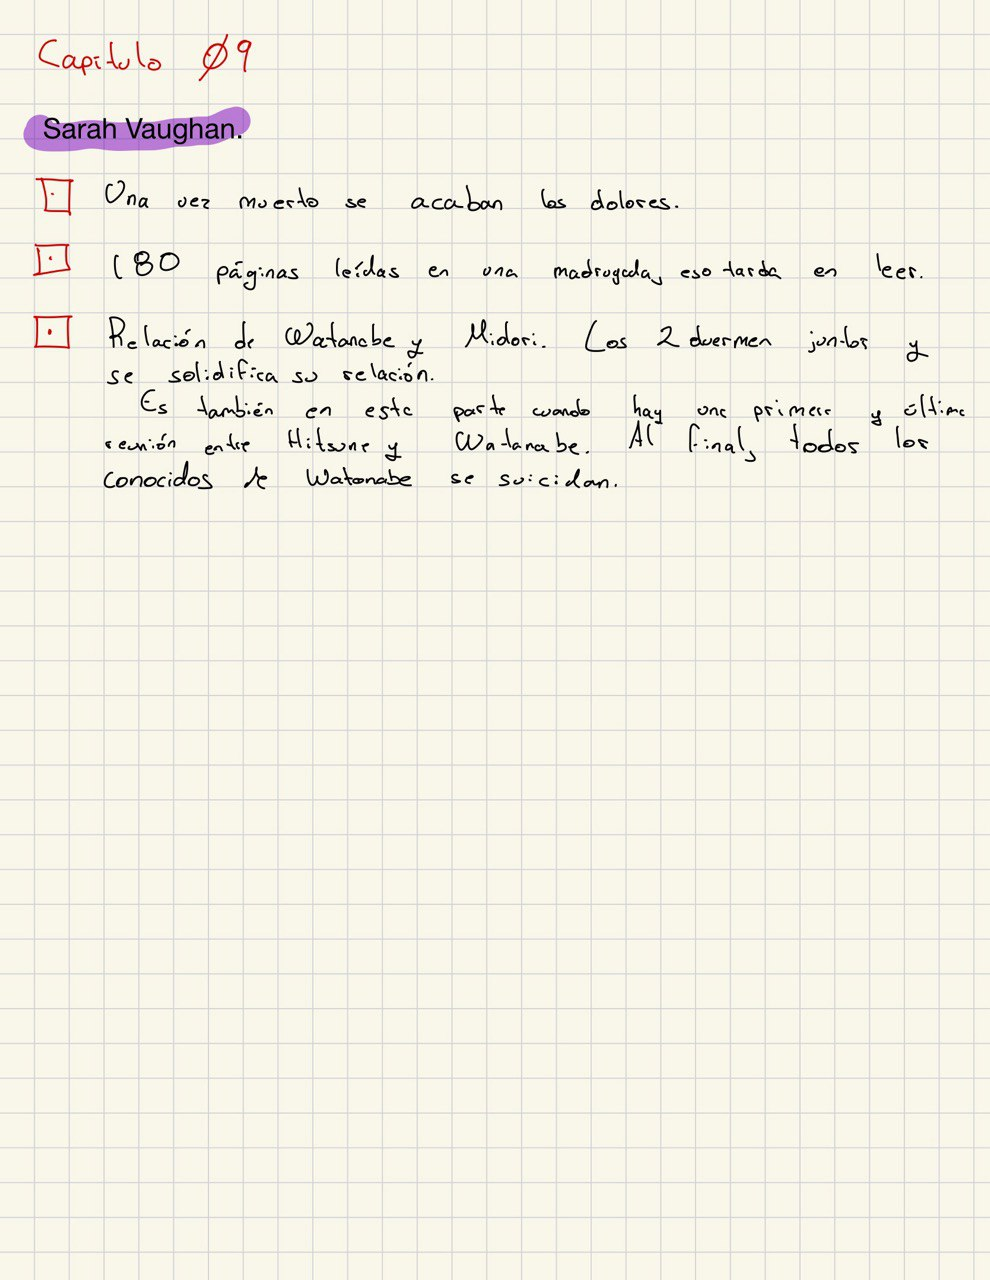 Capítulo Ø9
Sarah Vaughan.
Una vez muerto se acaban los dolores.
180 páginas leídas en una madrugada, eso tarda en leer.
Relación de Watanabe y Midori. Los 2 duermen juntos y
se solidifica su relación.
Es también en esta parte cuando hay una primera y última
reunión entre Hitsune y Watanabe. Al final, todos los
conocidos de Watanabe se suicidan.